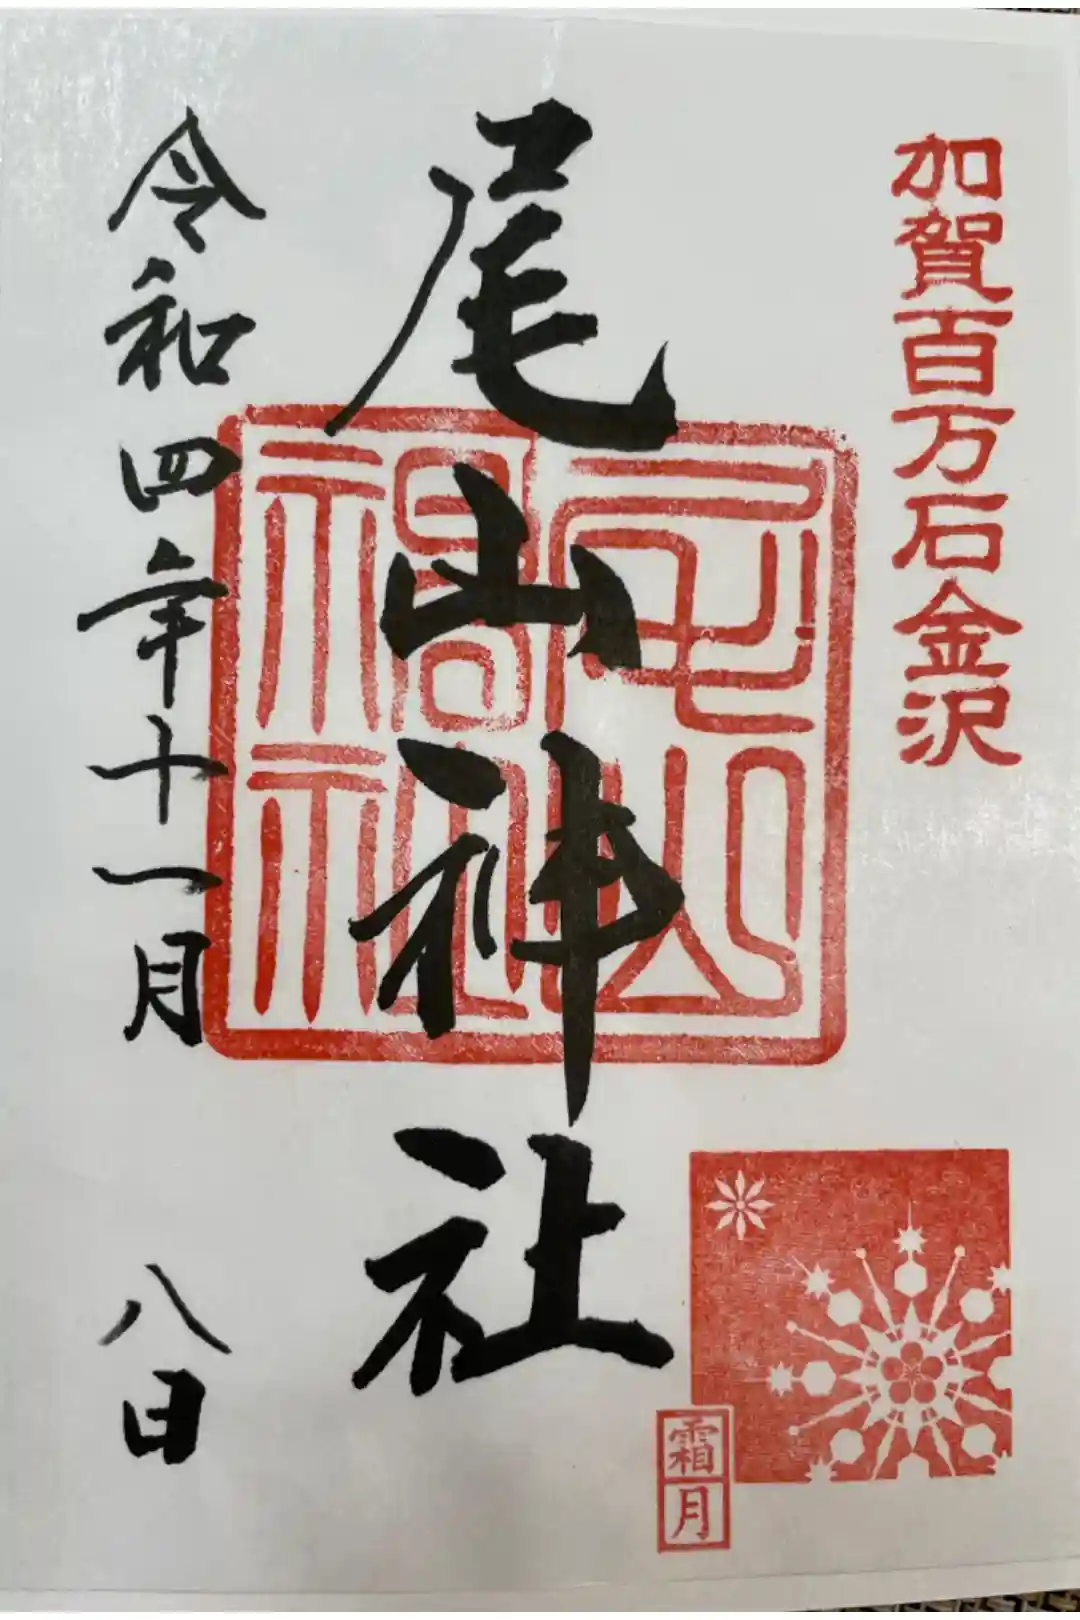 加賀百万石金沢
尾山神社
尾山神社
令和四年十一月八日
霜月